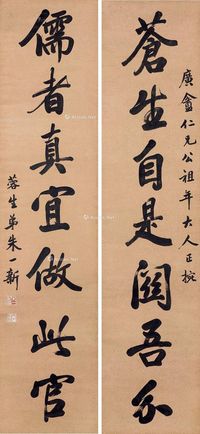 廣盦仁兄公祖年大人正腕
蒼生自是關吾分
儒者真宜做此官
蓉生弟朱一新